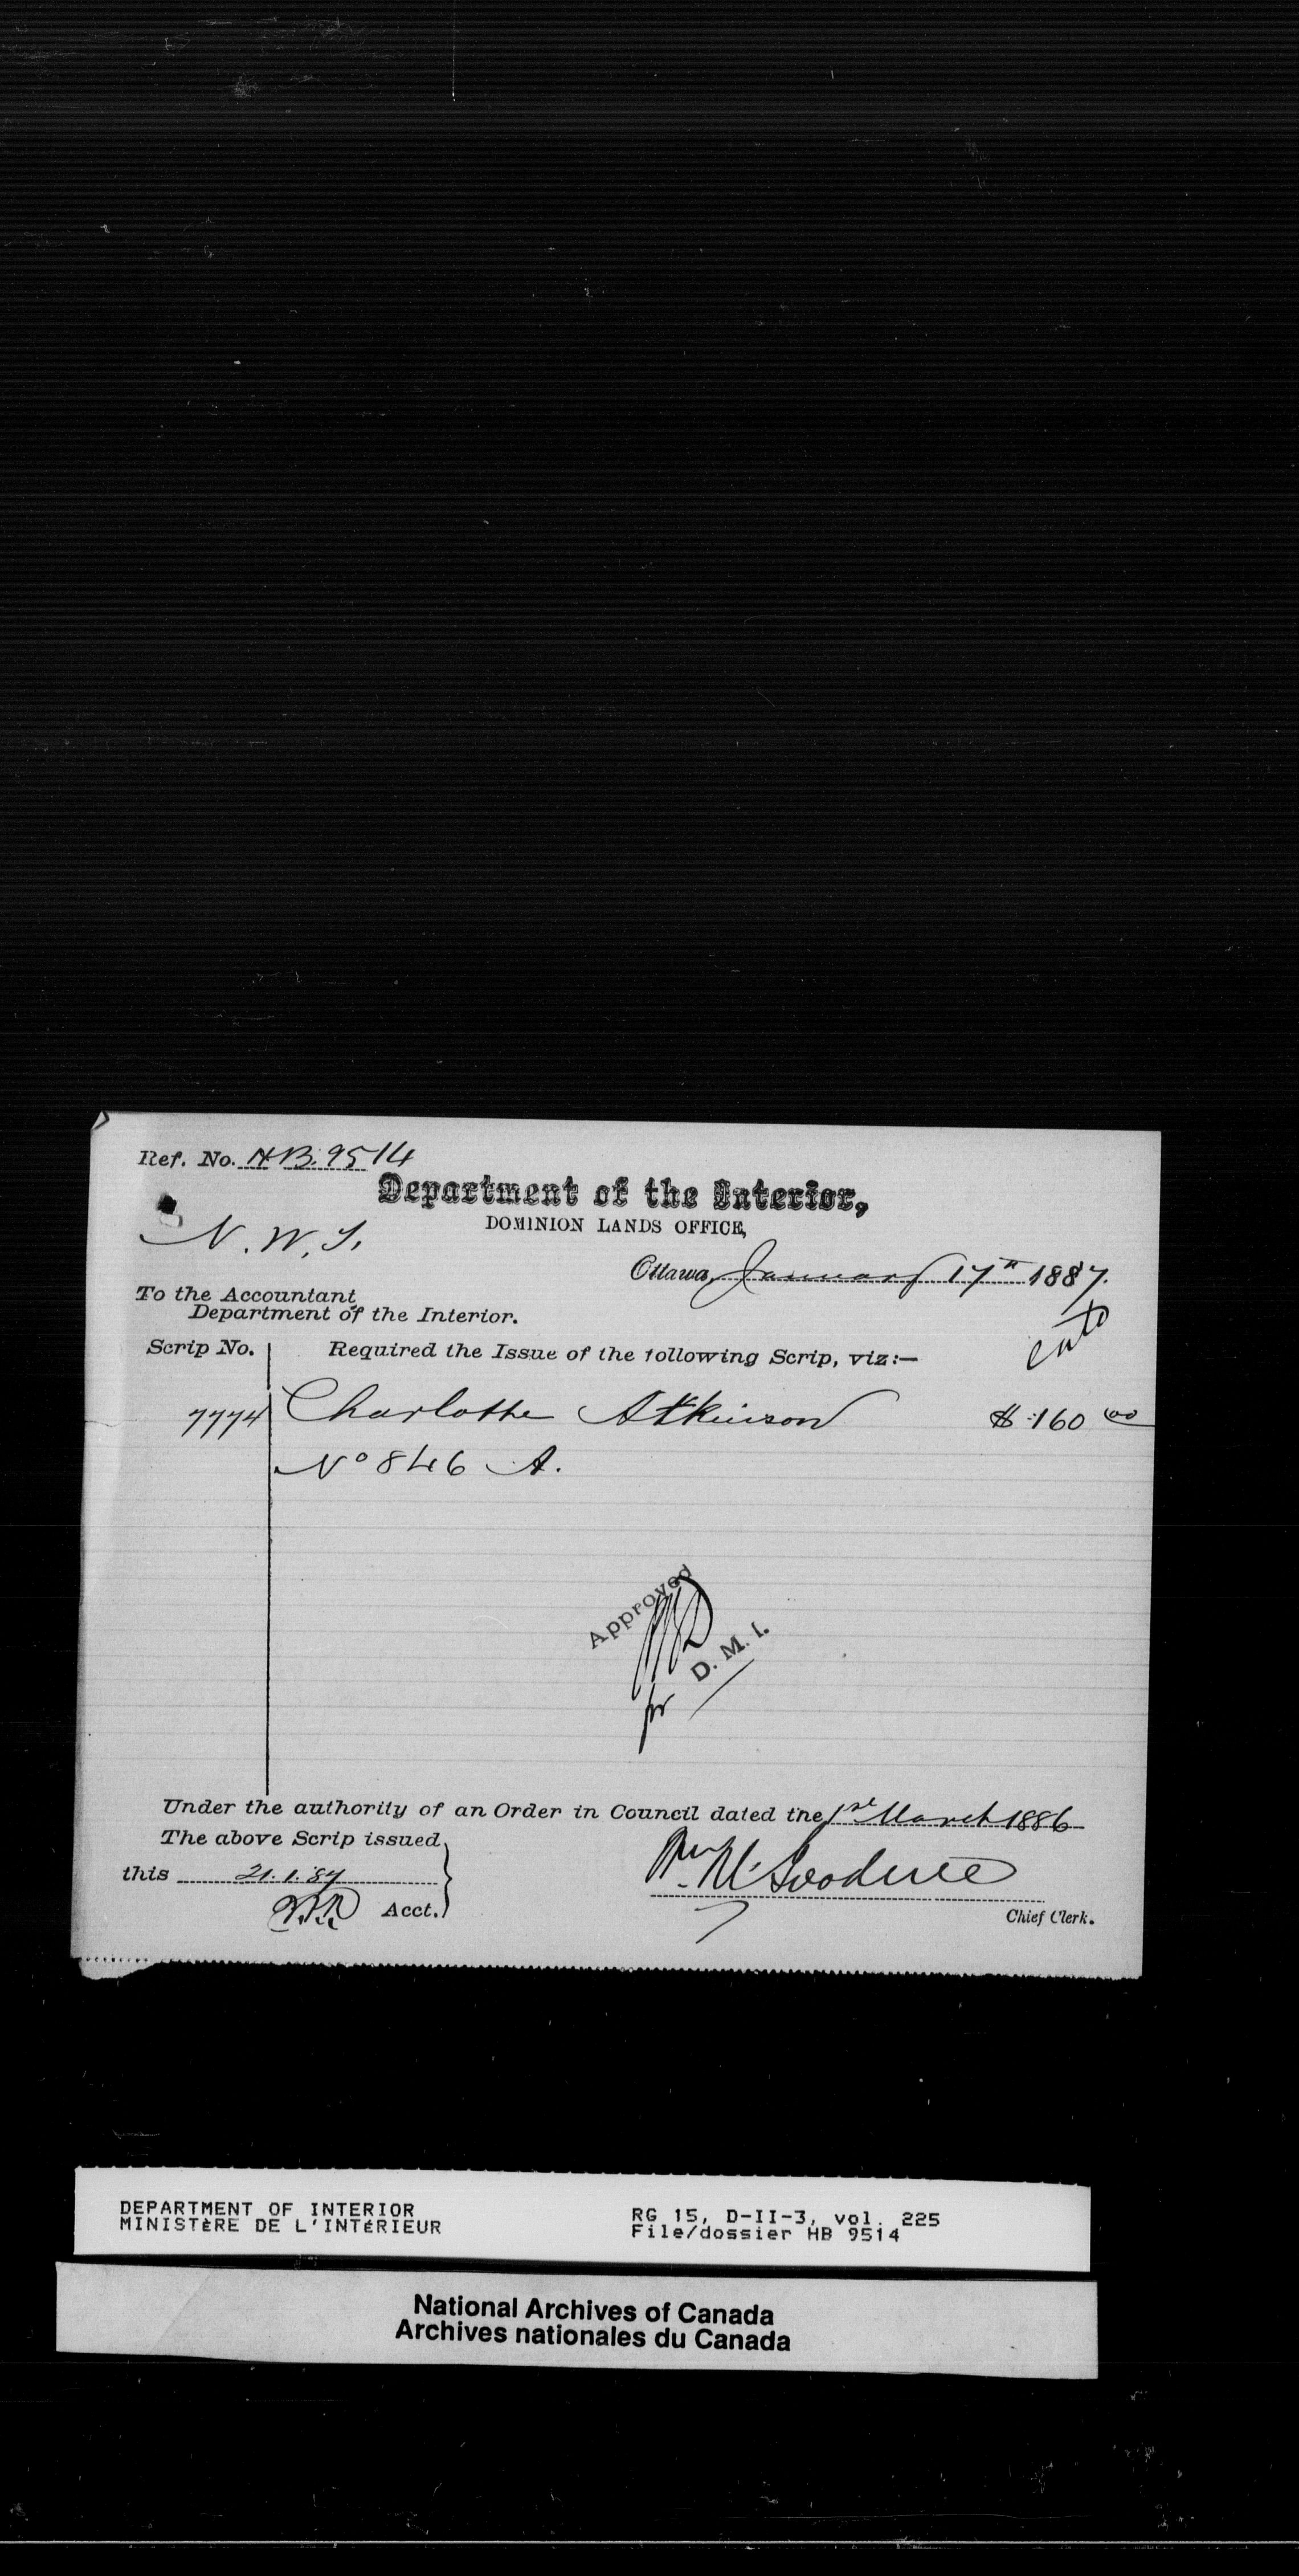 Ref. No. HB. 9514
Department of the Interior,
DOMINION LANDS OFFICE,
N. W. T.
Ottawa, January 17th 1887.
To the Accountant
Department of the Interior.
Scrip No. Required the Issue of the following Scrip, viz:—
7774 Charlotte Atkinson $ 160 00
No 846 A.
Approved
for D. M. I.
Under the authority of an Order in Council dated the 1st March 1886
The above Scrip issued
this 21.1.87
Acct.
Chief Clerk.
DEPARTMENT OF INTERIOR
MINISTÈRE DE L'INTÉRIEUR
RG 15, D-II-3, vol. 225
File/dossier HB 9514
National Archives of Canada
Archives nationales du Canada